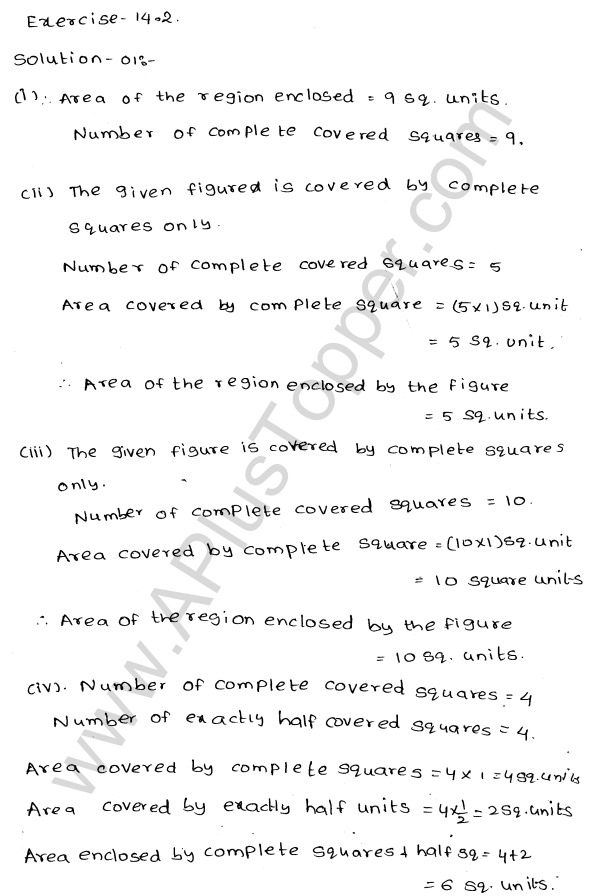 Exercise-14.2.
Solution-01:-
(i) ∴ Area of the region enclosed = 9 sq. units.
Number of complete covered squares = 9.
(ii) The given figured is covered by complete
squares only.
Number of complete covered squares = 5
Area covered by complete square = (5×1) sq. unit
= 5 sq. unit.
∴ Area of the region enclosed by the figure
= 5 sq. units.
(iii) The given figure is covered by complete squares
only.
Number of complete covered squares = 10.
Area covered by complete square = (10×1) sq. unit
= 10 square units
∴ Area of the region enclosed by the figure
= 10 sq. units.
(iv). Number of complete covered squares = 4
Number of exactly half covered squares = 4.
Area covered by complete squares = 4×1 = 4 sq. units
Area covered by exactly half units = 4×1/2 = 2 sq. units
Area enclosed by complete squares + half sq = 4+2
= 6 sq. units.
www.APlusTopper.com